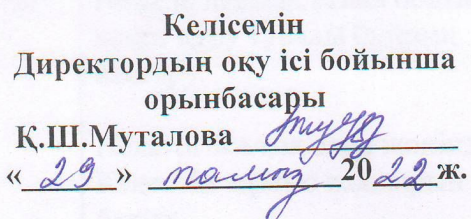 Келісемін
Директордың оқу ісі бойынша
орынбасары
Қ.Ш.Муталова
«29» тамыз 2022ж.